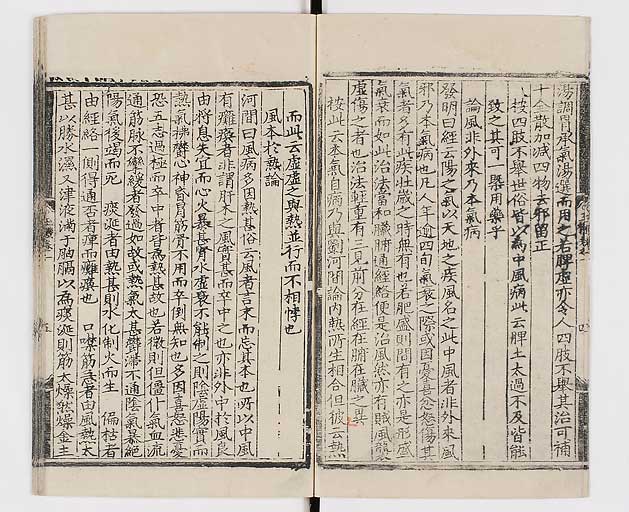 湯調胃承氣湯選而用之若脾虛亦令人四肢不舉其治可補
十全散加減四物去邪留正
按四肢不舉世俗皆以為中風病此云脾土太過不及皆能
致之其可一槩用藥乎
論風非外來乃本氣病
發明曰經云陽之氣以天地之疾風名之此中風者非外來風
邪乃本氣病也凡人年逾四旬氣衰之際或因憂喜忿怒傷其
氣者多有此疾壯歲之時無有也若肥盛則間有之亦是形盛
氣衰而如此治法當和臟腑通經絡便是治風然亦有賊風襲
虛傷之者也治法輕重有三見前分在經在腑在臟之異
按此云本氣自病乃與劉河間論內熱所生相合但彼云熱
而此云虛虛之與熱並行而不相悖也
風本於熱論
河間曰風病多因熱甚俗云風者言末而忘其本也所以中風
有癱瘓者非謂肝木之風實甚而卒中之也亦非外中於風良
由將息失宜而心火暴甚腎水虛衰不能制之則陰虛陽實而
熱氣拂鬱心神昏冒筋骨不用而卒倒無知也多因喜怒悲憂
恐五志過極而卒中者皆為熱甚故也若微則但僵仆氣血流
通筋脉不攣緩者發過如故或熱氣太甚鬱滯不通陰氣暴絕
陽氣後竭而死　痰涎者由熱甚則水化制火而生　偏枯者
由經絡一側得通否者痺而癱瘓也　口噤筋急者由風熱太
甚以勝水濕又津液滿于胸膈以為痰涎則筋太燥然燥金主